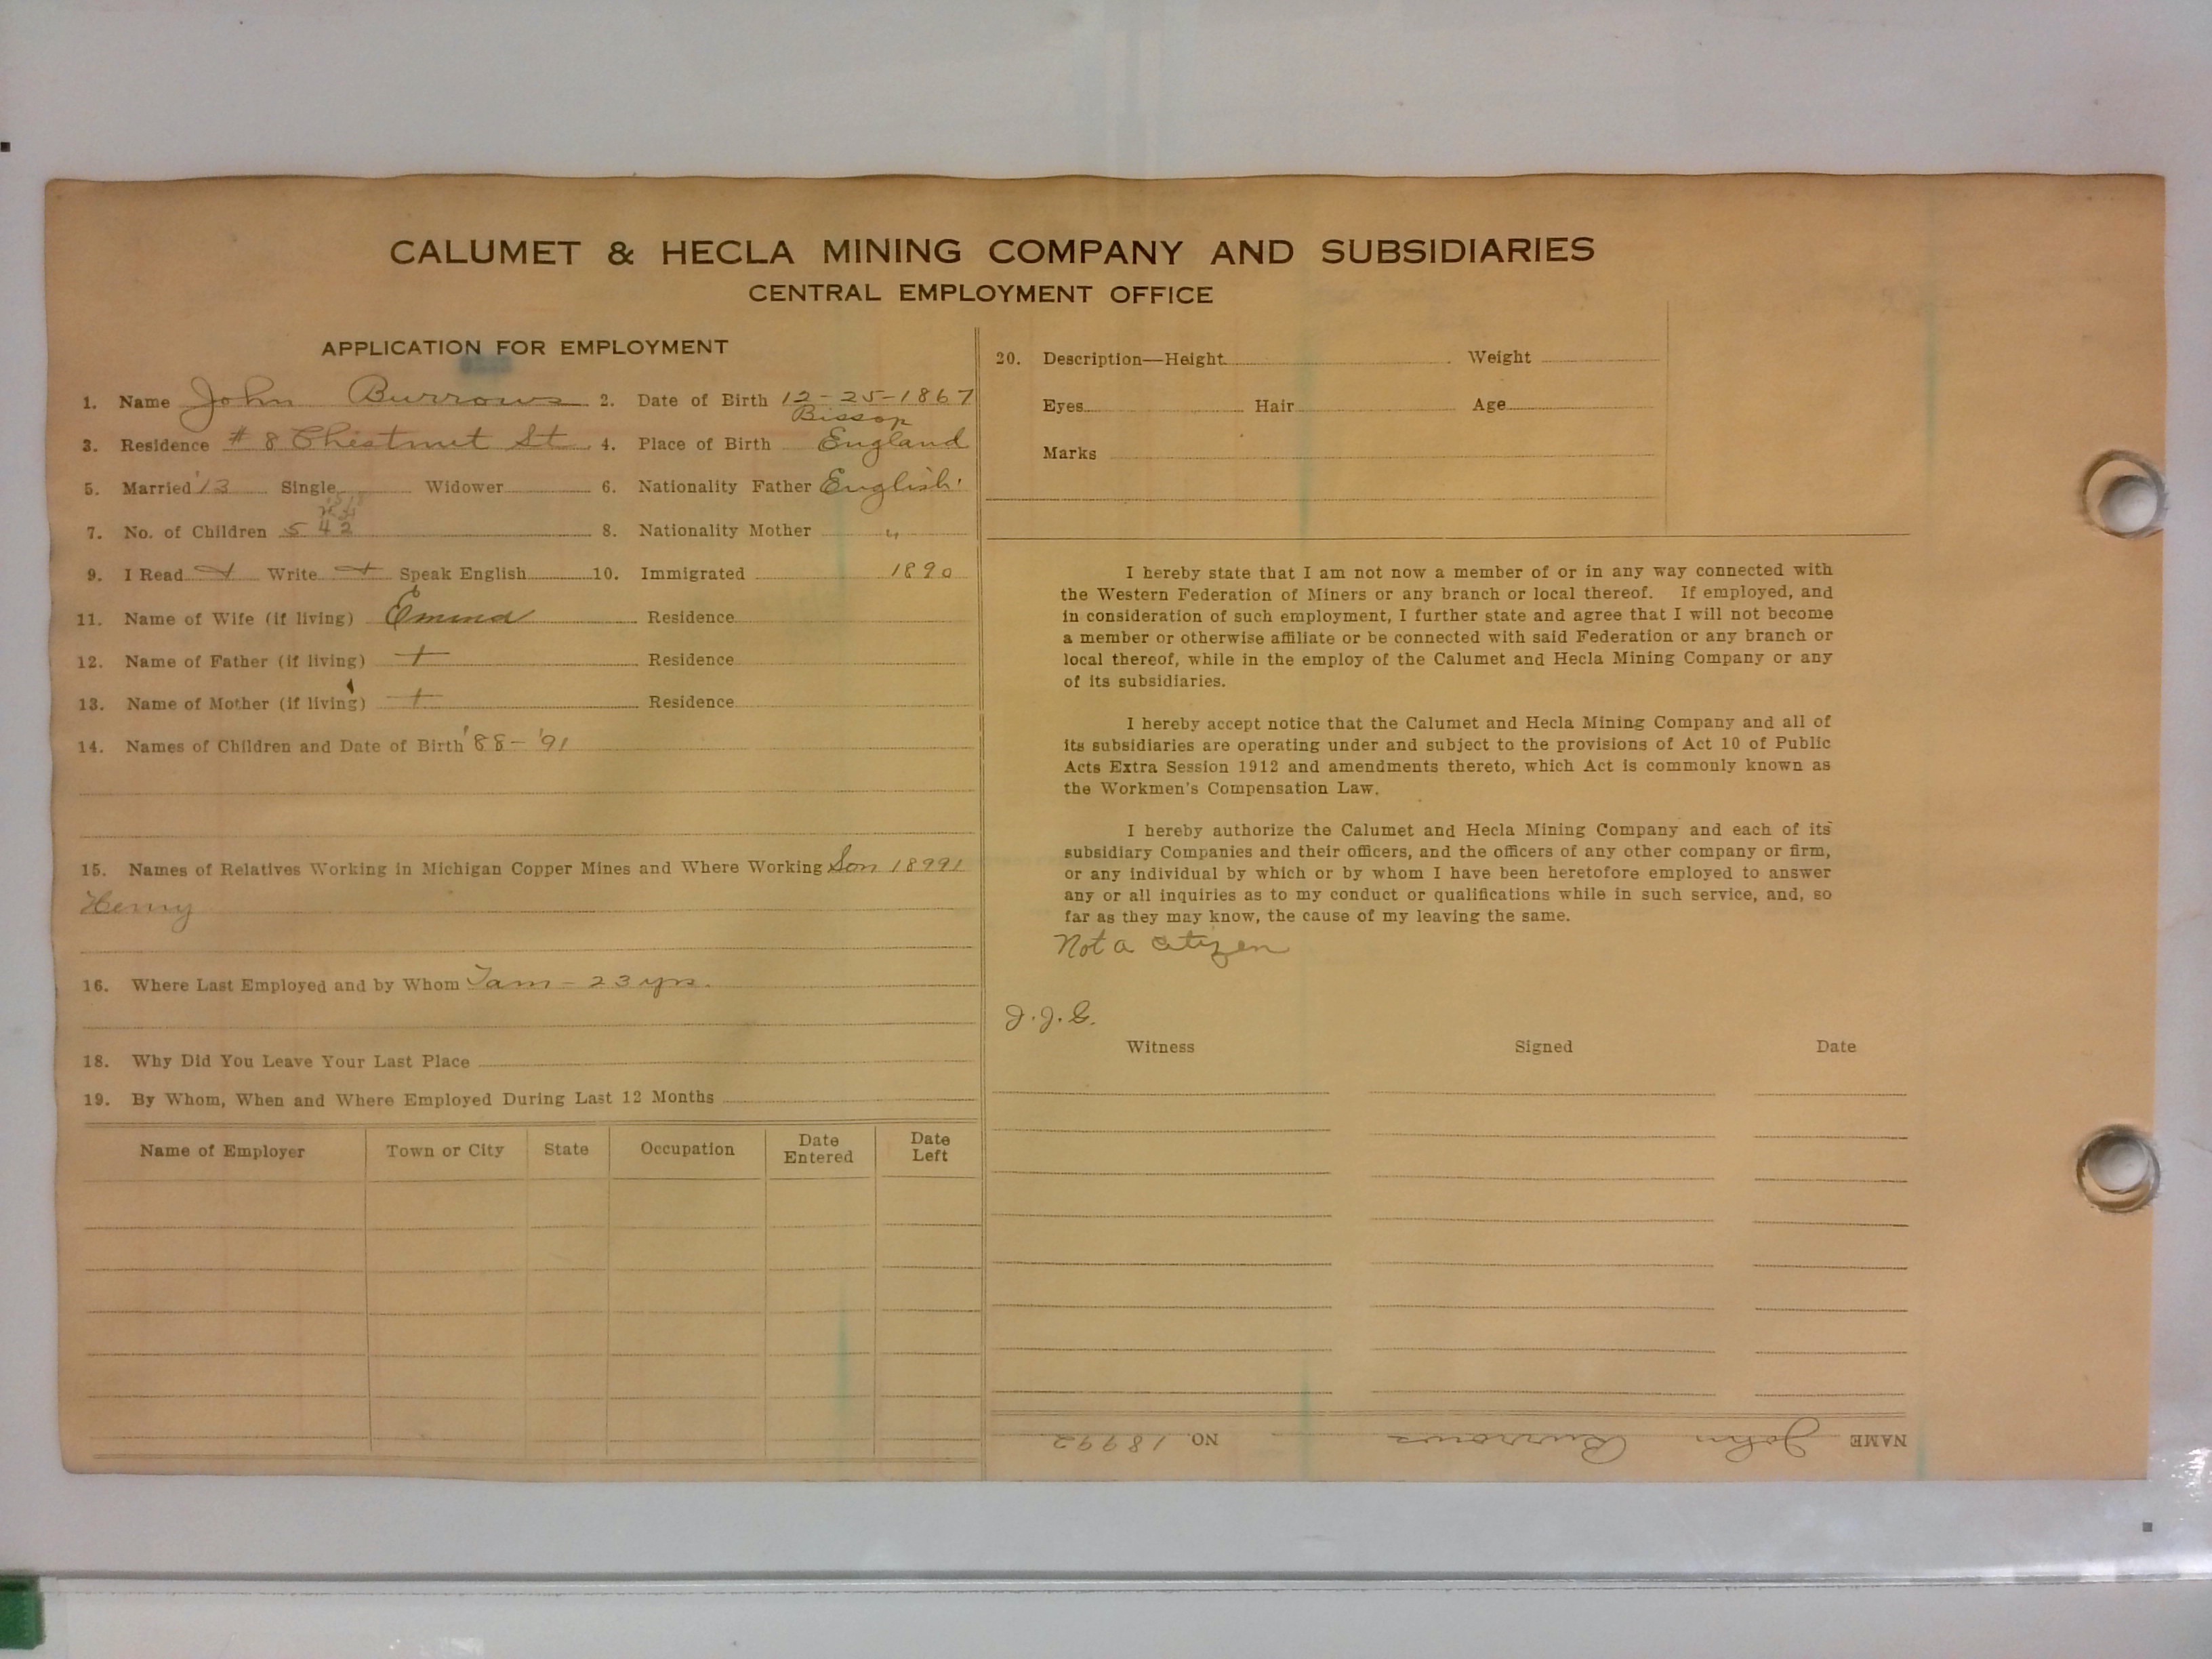 CALUMET & HECLA MINING COMPANY AND SUBSIDIARIES
CENTRAL EMPLOYMENT OFFICE
APPLICATION FOR EMPLOYMENT
1. Name John Burrows 2. Date of Birth 12-25-1867
Bissop
3. Residence # 8 Chestnut St 4. Place of Birth England
5. Married '13 Single Widower 6. Nationality Father English
7. No. of Children 5 4 2 8. Nationality Mother "
9. I Read Write Speak English 10. Immigrated 1890
11. Name of Wife (if living) Emma Residence
12. Name of Father (if living) + Residence
13. Name of Mother (if living) + Residence
14. Names of Children and Date of Birth '88-'91
15. Names of Relatives Working in Michigan Copper Mines and Where Working Son 18991
Henry
16. Where Last Employed and by Whom Tam - 23 yrs.
18. Why Did You Leave Your Last Place
19. By Whom, When and Where Employed During Last 12 Months
Name of Employer Town or City State Occupation Date Entered Date Left
20. Description—Height Weight
Eyes Hair Age
Marks
I hereby state that I am not now a member of or in any way connected with
the Western Federation of Miners or any branch or local thereof. If employed, and
in consideration of such employment, I further state and agree that I will not become
a member or otherwise affiliate or be connected with said Federation or any branch or
local thereof, while in the employ of the Calumet and Hecla Mining Company or any
of its subsidiaries.
I hereby accept notice that the Calumet and Hecla Mining Company and all of
its subsidiaries are operating under and subject to the provisions of Act 10 of Public
Acts Extra Session 1912 and amendments thereto, which Act is commonly known as
the Workmen's Compensation Law.
I hereby authorize the Calumet and Hecla Mining Company and each of its
subsidiary Companies and their officers, and the officers of any other company or firm,
or any individual by which or by whom I have been heretofore employed to answer
any or all inquiries as to my conduct or qualifications while in such service, and, so
far as they may know, the cause of my leaving the same.
Not a citizen
J.J.G.
Witness Signed Date
NAME John Burrows NO. 18992